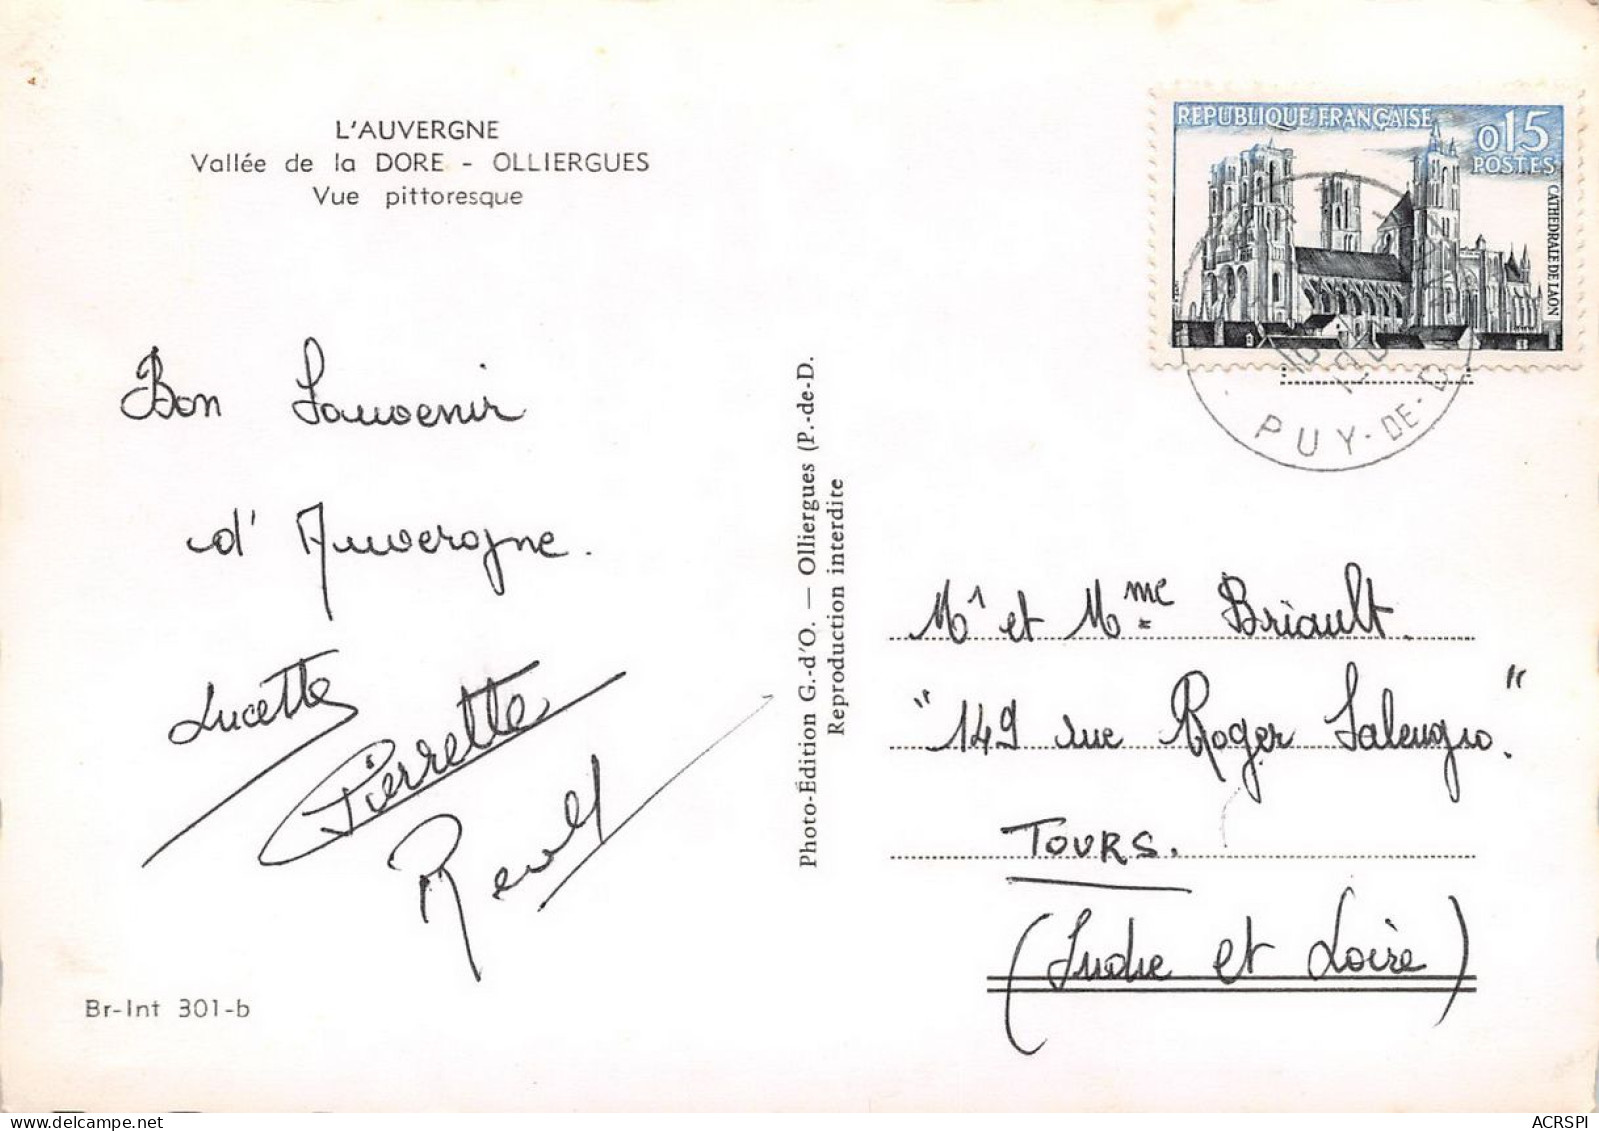 L'AUVERGNE
Vallée de la DORE - OLLIERGUES
Vue pittoresque
Bon Souvenir
d'Auvergne.
Lucette
Pierrette
Br-Int 301-b
Photo-Édition G.-d'O. — Olliergues (P.-de-D.
Reproduction interdite
REPUBLIQUE FRANÇAISE
0,15
POSTES
CATHEDRALE DE LAON
PUY-DE-D
Mr et Mme Briault.
"149 rue Roger Salengro."
TOURS.
(Indre et Loire)
ACRSPI